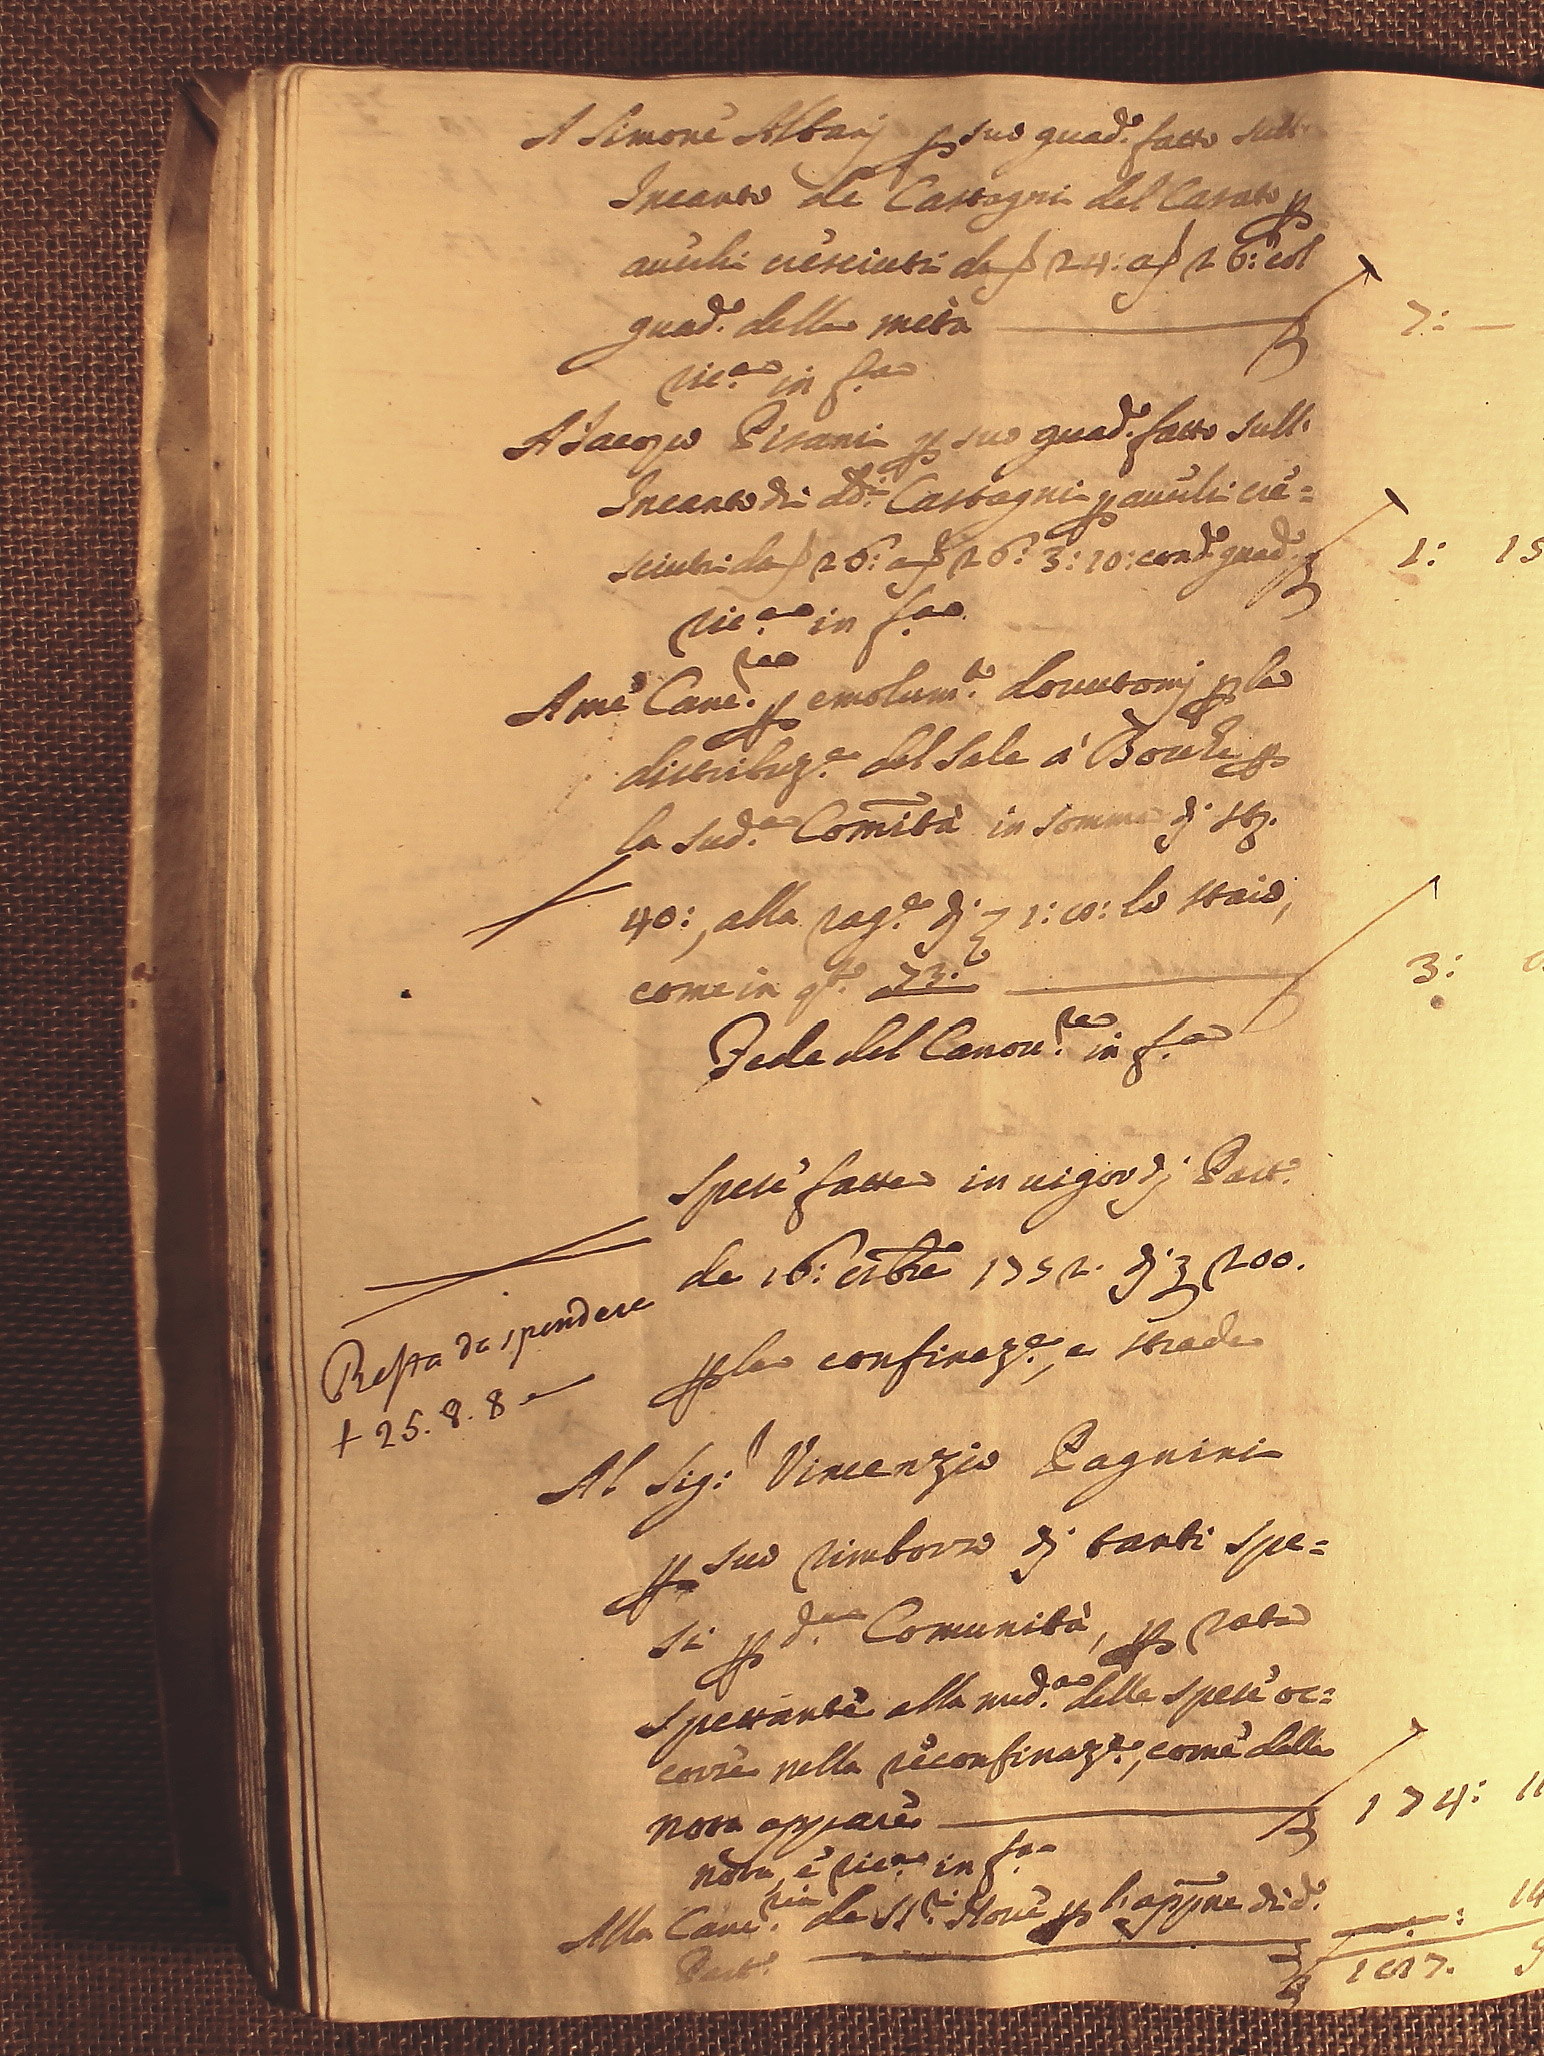 A Simone Albanj p suo guad.º fatto sull'
Incanto de Castagni del Casato p
averli cresciuti da 24: a 26: col
guad.º della metà 7: —
ric.ta in f.a
A Iacopo Pisani p suo guad.º fatto sull'
Incanto di dd.i Castagni p averli cre=
sciuti da 26: a 26: 3: 10: con d.º guad.º 1: 15
ric.ta in f.a
A me Canc.re p emolum.to dovutomj p la
distribuz.e del Sale a Bocche p
la sud.a Comità in somma dj sta.
40:, alla rag.e dj 1: 10: lo staio,
come in q.º 73: 3:
Fede del Canov.re in f.a
Spese fatte in vigor dj Part.º
de 16: 1752. dj 200.
p la confinaz.e, e strade
Resta da spendere
25.8.8
Al Sig.r Vincenzio Pagnini
p suo rimborso dj tanti spe=
si p d.a Comunità, p rata
spettante alla med.a delle spese oc=
corse nella reconfinaz.e, come dalla
nota appare 174: 11
nota, e ric.ta in f.a
Alla Canc.ria de SS.ri Nove p l'appne di d.º
Part.º